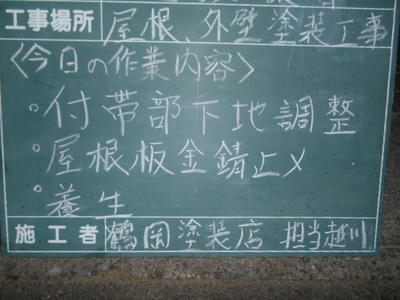 工事場所 屋根、外壁塗装工事
〈今日の作業内容〉
・付帯部下地調整
・屋根板金錆止メ
・養生
施工者 鶴岡塗装店 担当越川